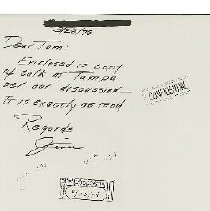 Dear Tom:
Enclosed is copy
of talk at Tampa
per our discussion—
It is exactly as read
Regards
Jim
CONFIDENTIAL